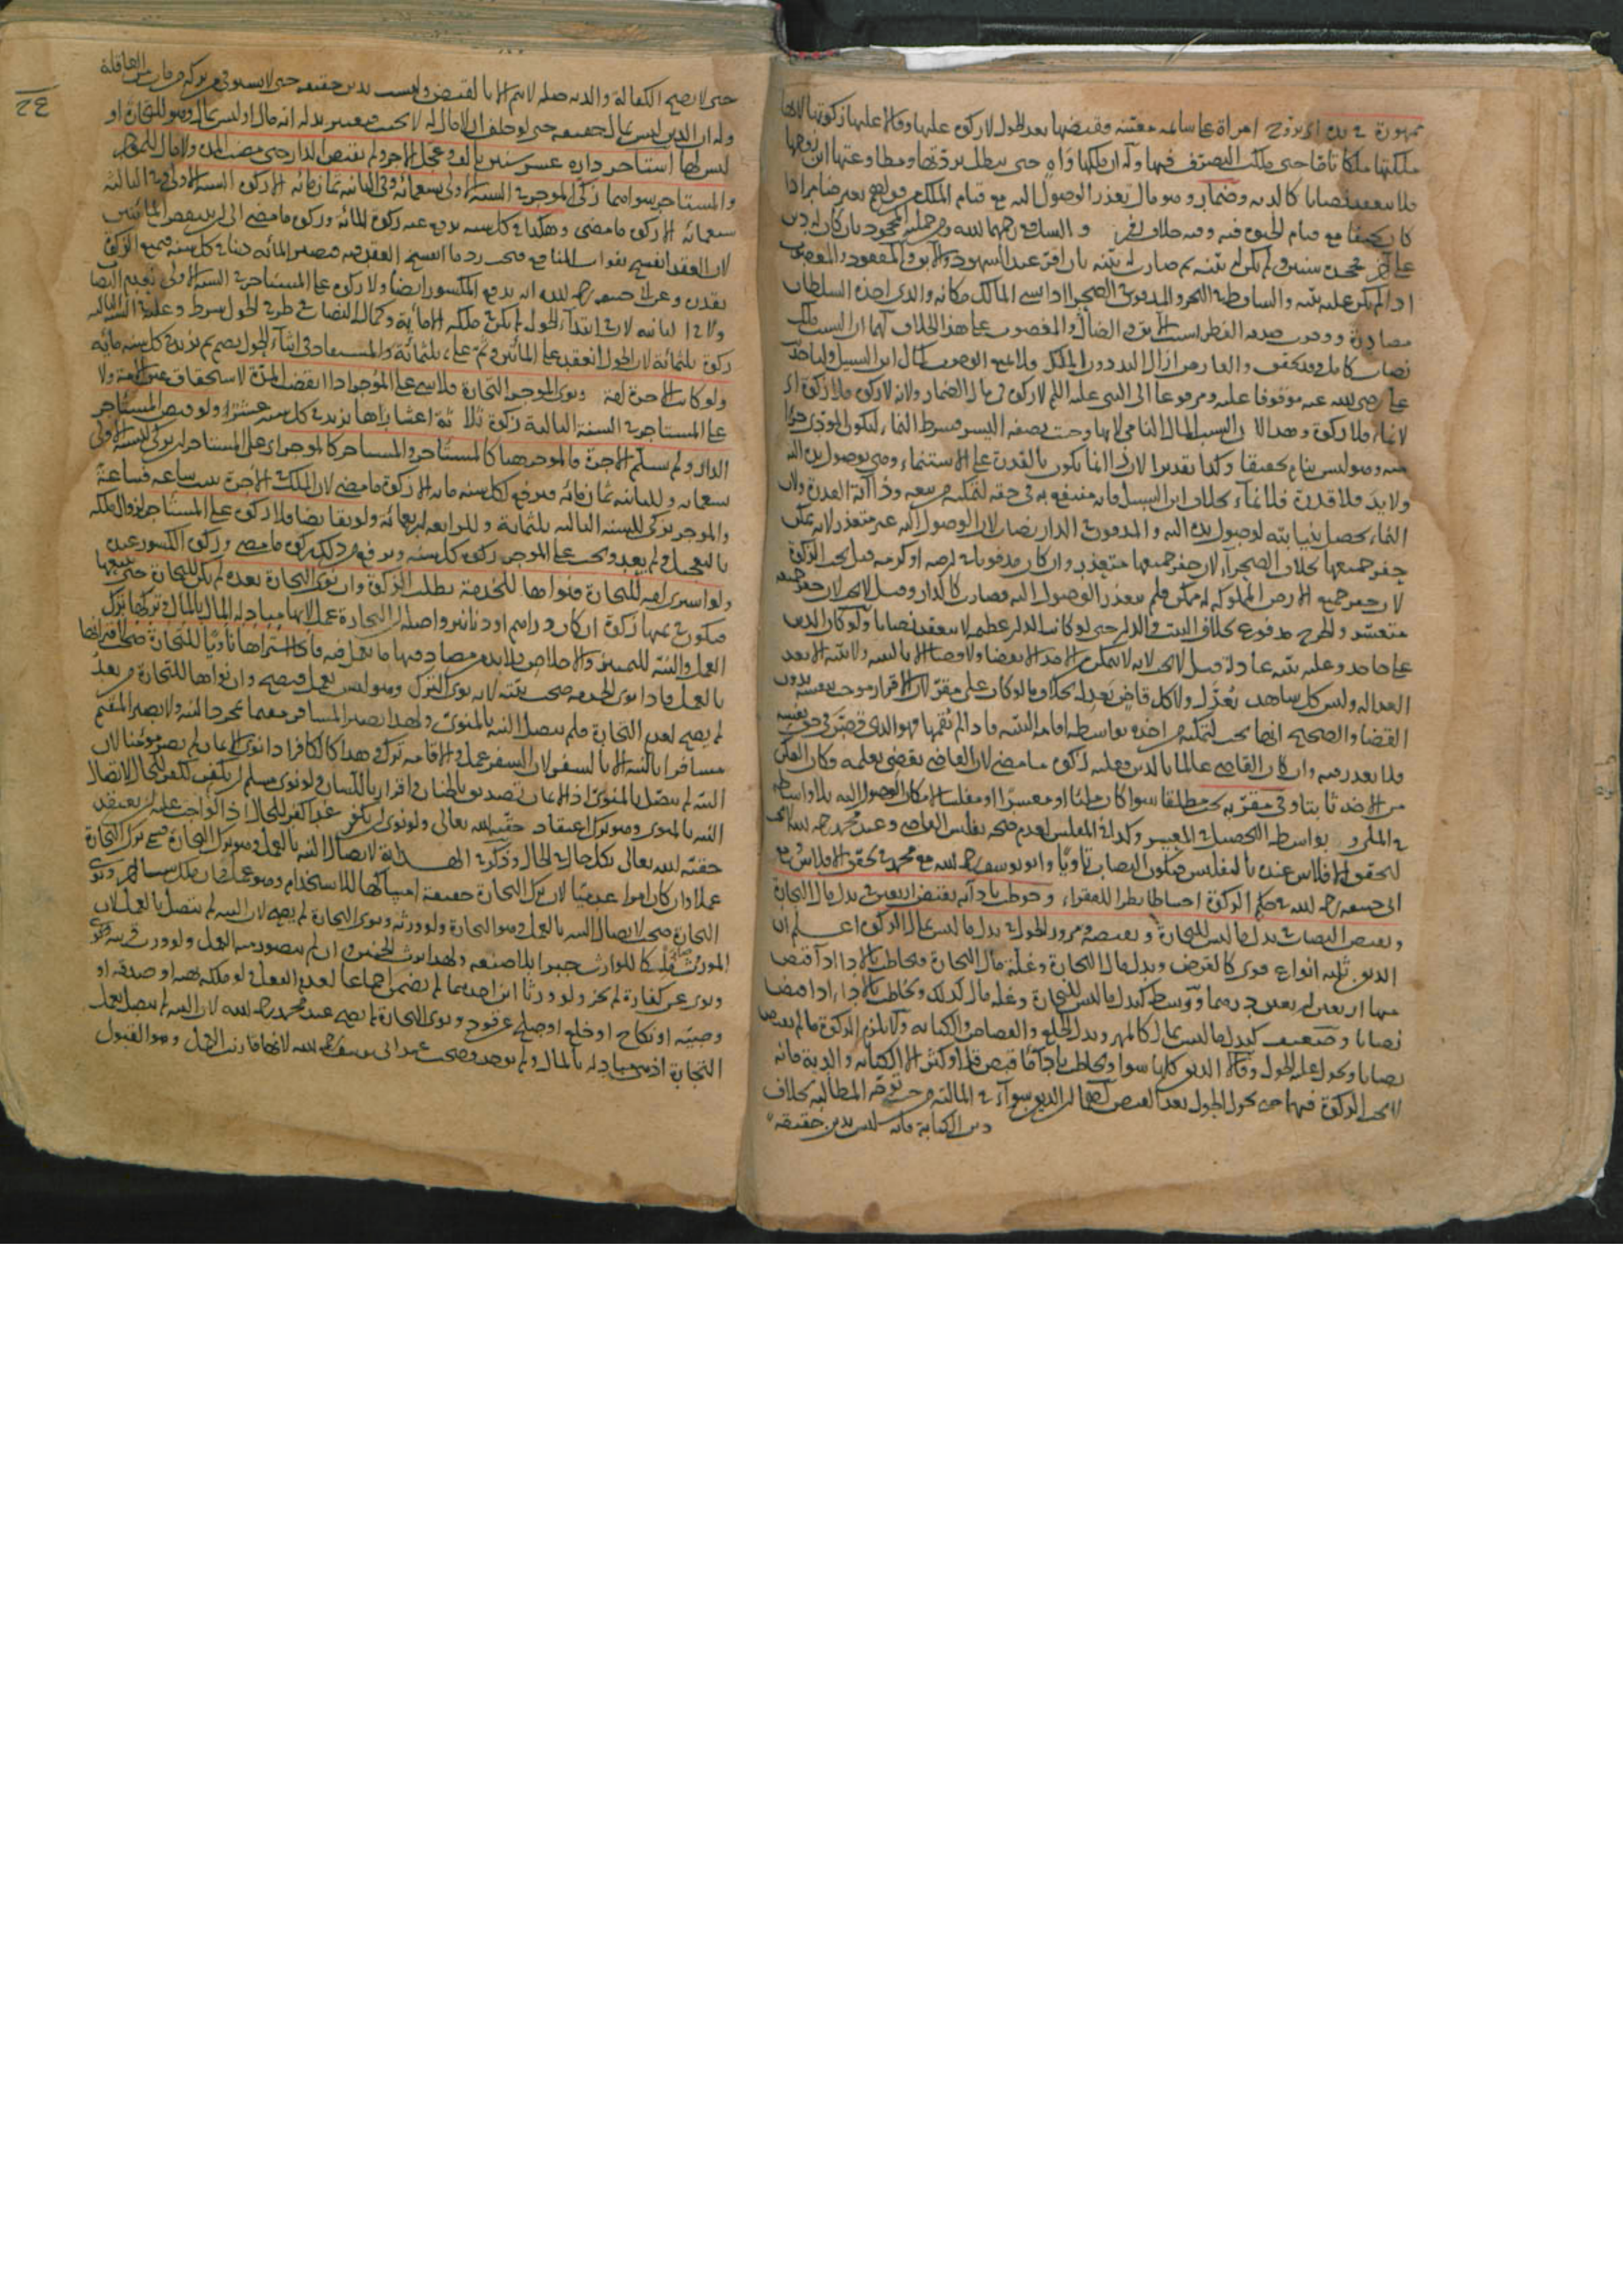 مهورة في يده اي تزوج امراة على سائمة معينة فقبضها بعد الحول لا زكوة عليها وقالا عليها زكوتها لانها
ملكتها ملكا تاما حتى ملكت التصرف فيها وله ان ملكها واه حتى يبطل بردتها ومطاوعتها ابن زوجها
فلا ينعقد نصابا كالدية وضمار وهو مال تعذر الوصول اليه مع قيام الملك
كان مع قيام وفيه خلاف زفر والشافعي رحمهما الله ومن جملته المجحود بان كان له دين
على آخر فجحده سنين ولم يكن له بينة ثم صارت له بينة بان اقر عند الشهود والابق والمفقود والمغصوب
اذا لم يكن عليه بينة والساقط في البحر والمدفون في الصحراء اذا نسي المالك مكانه والذي اخذه السلطان
مصادرة ووجوب صدقة الفطر بسبب الابق والضال والمغصوب على هذا الخلاف لهما ان السبب ملك
نصاب كامل وقد تحقق والعارض ازال اليد دون الملك ولا يمنع الوجوب كمال ابن السبيل ولنا حديث
علي رضي الله عنه موقوفا عليه ومرفوعا الى النبي عليه السلام لا زكوة في مال الضمار ولانه
لا نماء فلا زكوة وهذا لان السبب المال النامي
وهو ليس بنام تحقيقا وكذا تقديرا لان النماء يكون بالقدرة على الاستنماء وهي بوصول يده اليه
ولا يد فلا قدرة فلا نماء بخلاف ابن السبيل فانه منتفع به في حقه لتمكنه من بيعه وذا آية القدرة ولان
النماء يحصل بنيابته لوصول يده اليه والمدفون في الدار نصاب لان الوصول اليه غير متعذر لانه يمكن
حفر جميعها بخلاف الصحراء لان حفر جميعها متعذر وان كان مدفونا في ارضه او كرمه قيل يجب الزكوة
لان حفر جميع الارض المملوكة له ممكن فلم يتعذر الوصول اليه فصارت كالدار وقيل لا يجب لان حفر جميعه
متعسر والحرج مدفوع بخلاف البيت والدار حتى لو كانت الدار عظيمة لا ينعقد نصابا ولو كان الدين
على جاحد وعليه بينة عادلة قيل لا يجب لانه لا يتمكن من اخذه الا بقضاء ولا قضاء الا بالبينة ولا بينة الا بعد
العدالة وليس كل شاهد يعدل ولا كل قاض يعدل بخلاف ما لو كان على مقر لان الاقرار موجب بنفسه بدون
القضاء والصحيح انها تجب لتمكنه من اخذه بواسطة اقامة البينة فاذا لم يقمها فهو الذي قصر في حق نفسه
فلا يعذر فيه وان كان القاضي عالما بالدين فعليه زكوة ما مضى لان القاضي يقضي بعلمه فكان التمكن
من الاخذ ثابتا وفي مقر به يجب مطلقا سواء كان مليا او معسرا او مفلسا لامكان الوصول اليه بلا واسطة
في الملي و بواسطة التحصيل في المعسر وكذا في المفلس لعدم صحة تفليس القاضي وعند محمد رحمه الله لا يجب
لتحقق الافلاس عنده بالتفليس فيكون النصاب تاويا وابو يوسف رحمه الله مع محمد في تحقق الافلاس ومع
ابي حنيفة رحمه الله في حكم الزكوة احتياطا نظرا للفقراء وخوطب باداء بقبض اربعين في بدل مال التجارة
وبقبض النصاب في بدل ما ليس للتجارة وبقبضه ومرور الحول في بدل ما ليس بمال الزكوة اعلم ان
الديون ثلثة انواع قوي كالقرض وبدل مال التجارة وغلة مال التجارة فيخاطب بالاداء اذا قبض
منها اربعين درهما ووسط كبدل ما ليس للتجارة وغلة مال كذلك ويخاطب بالاداء اذا قبض
نصابا وضعيف كبدل ما ليس بمال كالمهر وبدل الخلع والقصاص والكتابة ولا يلزم الزكوة ما لم يقبض
نصابا ويحول عليه الحول وقالا الديون كلها سواء ويخاطب باداء ما قبض قل او كثر الا الكتابة والدية فانه
لا يجب الزكوة فيهما حتى يحول الحول بعد القبض لهما ان الديون سواء في المالية من حيث توجه المطالبة بخلاف
دين الكتابة فانه ليس بدين حقيقة
٢٤
حتى لا يصح الكفالة والدية صلة لا يتم الا بالقبض وليست بدين حقيقة حتى لا يستوفى من تركة من مات من العاقلة
وله ان الدين ليس بمال حقيقة حتى لو حلف ان لا مال له لا يحنث فيعتبر بدله انه مال او ليس بمال وهو للتجارة او
ليس لها استاجر داره عشر سنين بالف وعجل الاجر ولم يقبض الدار حتى مضت المدة ولا مال للموجر
والمستاجر سواهما زكى الموجر في السنة الاولى تسعمائة وفي الثانية ثمانمائة الا زكوة السنة الاولى وفي الثالثة
سبعمائة الا زكوة ما مضى وهكذا في كل سنة يرفع عنه زكوة المائة وزكوة ما مضى الى ان ينقص المائتين
لان العقد انفسخ بفوات المنافع فيجب رد ما انفسخ العقد فيه فيصير المائة دينا في كل سنة فيمنع الزكوة
بقدره وعن ابي حنيفة رحمه الله انه يدفع الكسور ايضا ولا زكوة على المستاجر في السنة الاولى لعدم النصاب
ولا في الثانية لان في ابتداء الحول لم يكن في ملكه الا مائة وكمال النصاب في طرفي الحول شرط وعليه في السنة الثالثة
زكوة ثلثمائة لان الحول انعقد على المائتين وتم على ثلثمائة والمستفاد في اثناء الحول يضم ثم يزيد في كل سنة مائة
ولو كانت الاجرة امة ونوى الموجر التجارة فلا شيء على الموجر اذا انقضت المدة لاستحقاق عين الامة ولا
على المستاجر في السنة الثالثة زكوة ثلاثة اعشارها يزيد في كل سنة عشرا ولو قبض المستاجر
الدار ولم يسلم الاجرة فالموجر هنا كالمستاجر والمستاجر كالموجر اي على المستاجر ان يزكي للسنة الاولى
تسعمائة وللثانية ثمانمائة فيرفع لكل سنة مائة الا زكوة ما مضى لان الملك في الاجرة يثبت ساعة فساعة
والموجر يزكي للسنة الثالثة ثلثمائة وللرابعة اربعمائة ولو تقابضا فلا زكوة على المستاجر لزوال ملكه
بالتعجيل ولم يعد ويجب على الموجر زكوة كل سنة ويرفع من ذلك زكوة ما مضى وزكوة الكسور عنده
ولو اشترى امة للتجارة فنواها للخدمة بطلت الزكوة وان نوى التجارة بعده لم يكن للتجارة حتى يبيعها
فيكون في ثمنها زكوة ان كان دراهم او دنانير واصله ان التجارة عمل لانها مبادلة المال بالمال وتركها ترك
العمل والنية للتمييز والاخلاص ولا بد من مصادفتها ما تعمل فيه فاذا اشتراها ناويا للتجارة صحت لاقترانها
بالعمل فاذا نوى الخدمة صحت نيته لانه نوى الترك وهو ليس بعمل فيصح وان نواها للتجارة من بعد
لم يصح لعدم التجارة فلم يتصل النية بالمنوي ولهذا يصير المسافر مقيما بمجرد النية ولا يصير المقيم
مسافرا بالنية الا بالسفر لان السفر عمل والاقامة ترك وهذا كالكافر اذا نوى الايمان لم يصر مؤمنا لان
النية لم يتصل بالمنوي اذ الايمان تصديق بالجنان واقرار باللسان ولو نوى مسلم ان يكفر يكفر للحال لاتصال
النية بالمنوي وهو ترك اعتقاد حقية الله تعالى ولو نوى ان يكفر غدا كفر للحال اذ الواجب عليه ان يعتقد
حقية الله تعالى بكل حال في الحال وذكر في الهداية لاتصال النية بالعمل وهو ترك التجارة سمي ترك التجارة
عملا وان كان امرا عدميا لان ترك التجارة حقيقة امساكها للاستخدام وهو عمل فان ملك شيئا ونوى
التجارة صحت لاتصال النية بالعمل وهو التجارة ولو ورثه ونوى التجارة لم يصح لان النية لم تتصل بالعمل لان
الموروث صار ملكا للوارث جبرا بلا صنعه ولهذا يرث الجنين وان لم يتصور منه الفعل ولو ورث قريبه
ونوى عن كفارة لم يجز ولو ورثا ابن احدهما لم يضمن اجماعا لعدم الفعل ولو ملكه بهبة او صدقة او
وصية او نكاح او خلع او صلح عن قود ونوى التجارة لم يصح عند محمد رحمه الله لان النية لم يتصل بعمل
التجارة اذ هي مبادلة بالمال ولم يوجد وصحت عند ابي يوسف رحمه الله لانها قارنت العمل وهو القبول